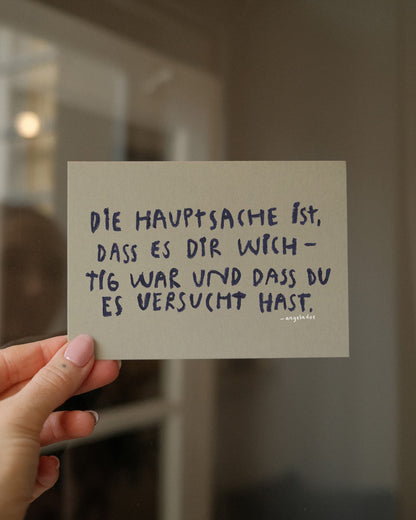 DIE HAUPTSACHE iST,
DASS ES DIR WICH-
TIG WAR UND DASS DU
ES VERSUCHT HAST.
-angeladoe